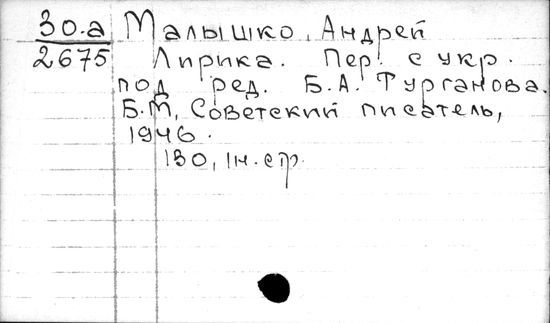 30.а Малышко, Андрей
2675 Лирика. Пер. с укр.
под ред. Б.А. Турганова.
Б.М, Советский писатель,
1946.
130, 1н. стр.